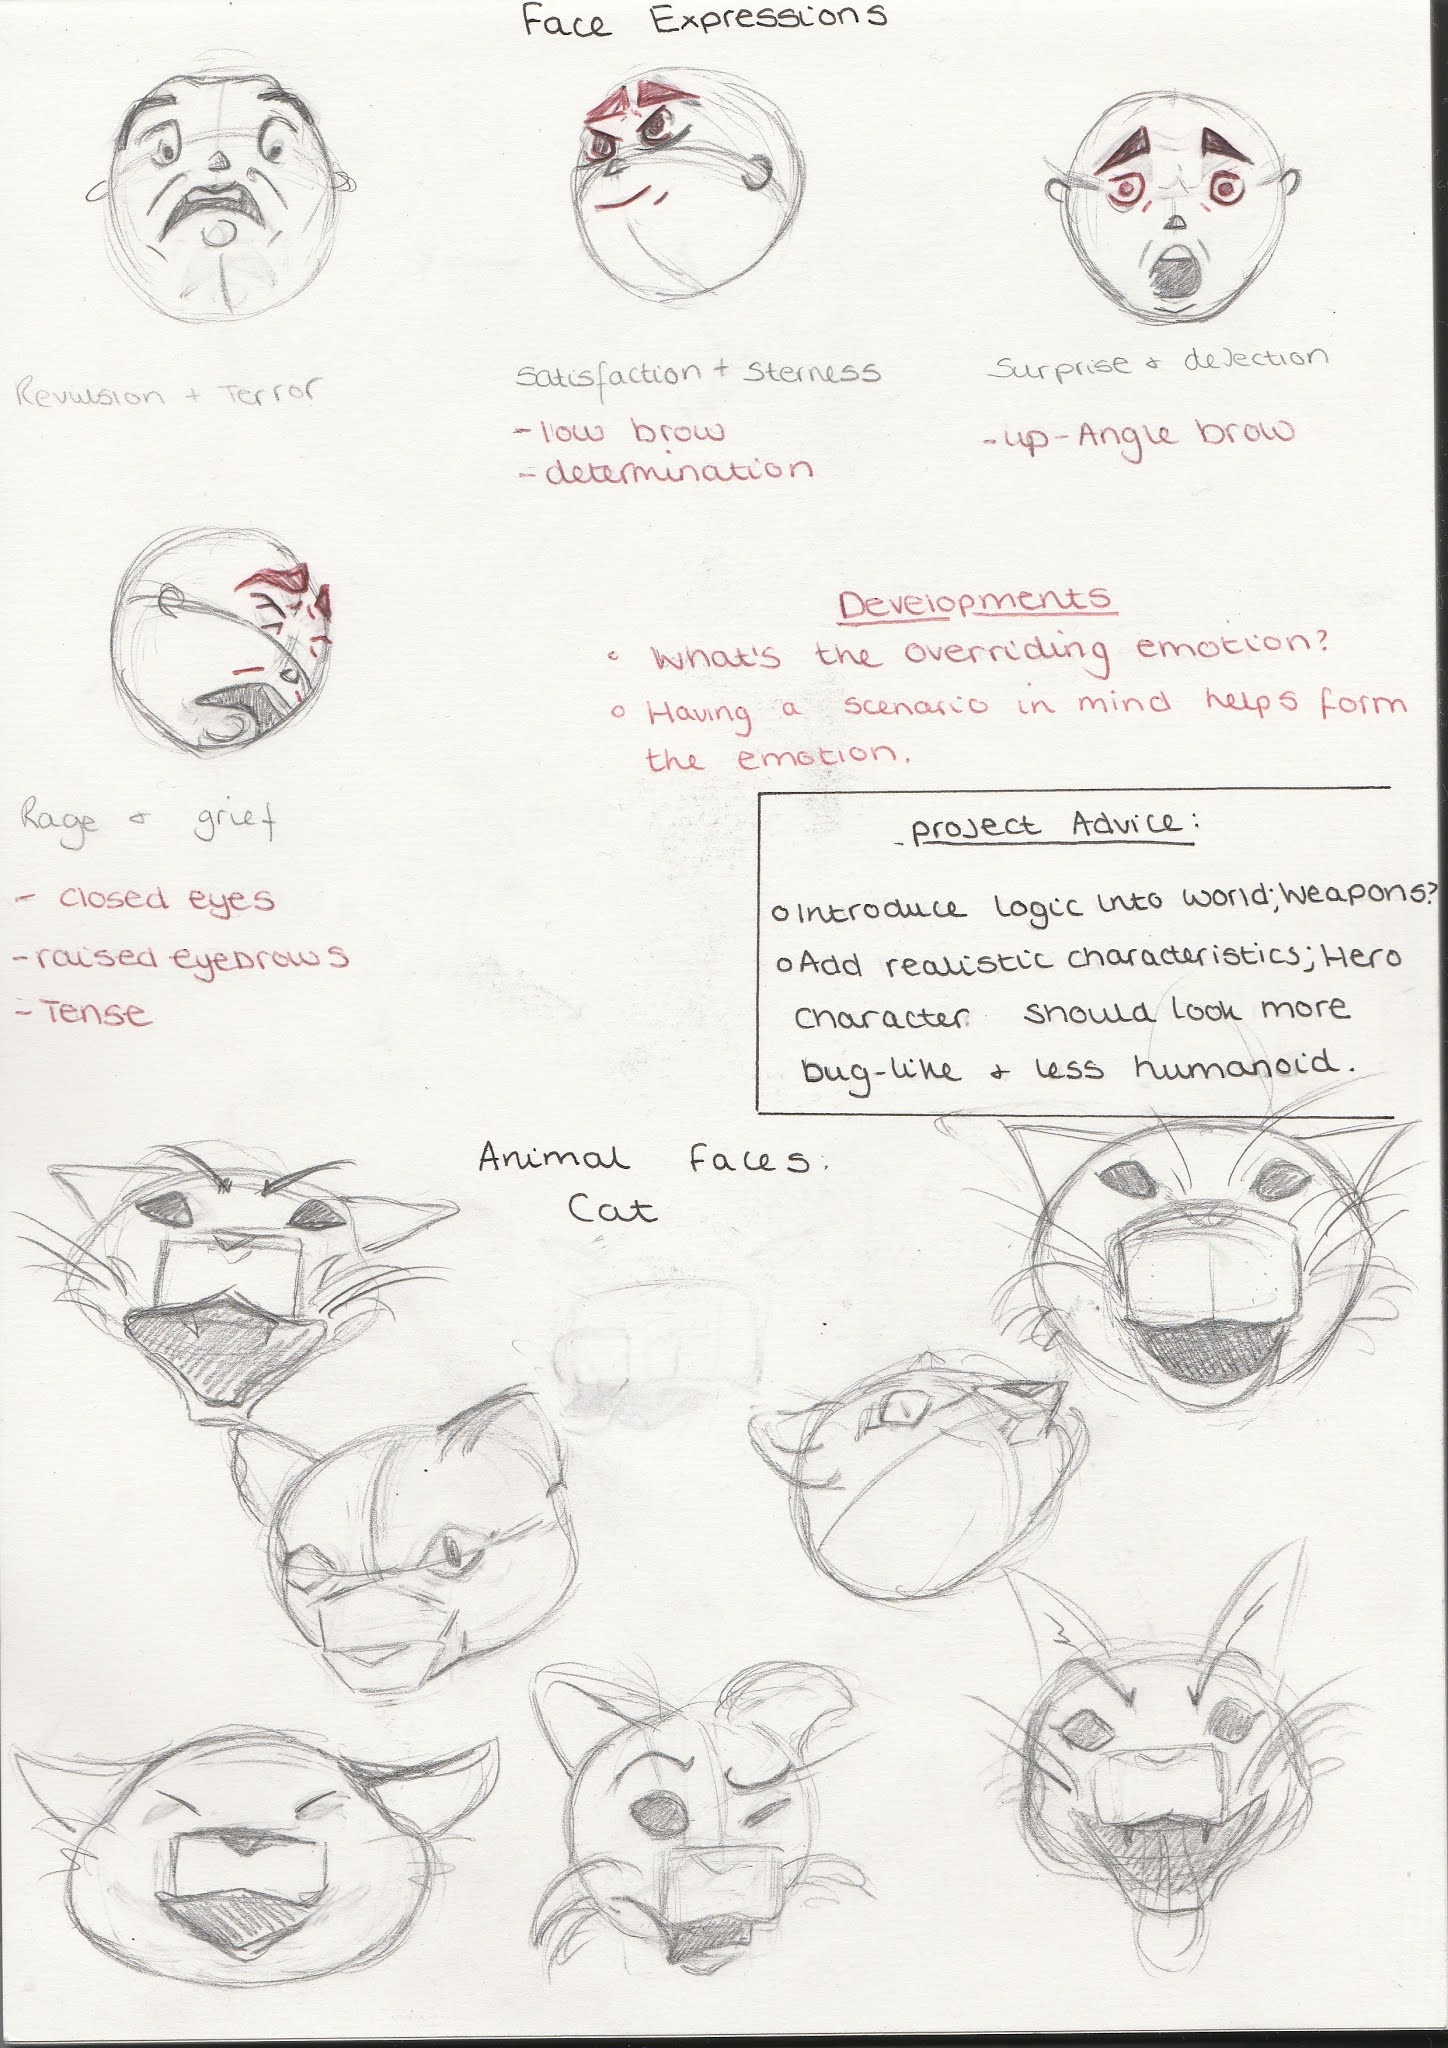 Face Expressions
Revulsion + Terror
Satisfaction + Sterness
- low brow
- determination
Surprise & dejection
- up-Angle brow
Rage & grief
- closed eyes
- raised eyebrows
- Tense
Developments
o What's the overriding emotion?
o Having a scenario in mind helps form
the emotion.
project Advice:
o Introduce logic into world; Weapons?
o Add realistic characteristics; Hero
character should look more
bug-like & less humanoid.
Animal faces:
Cat